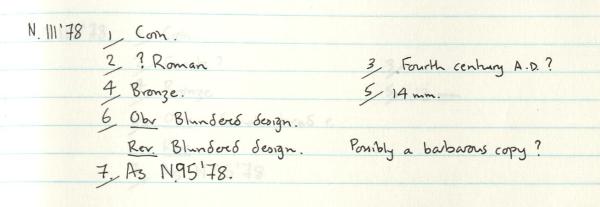 N. 111'78 1, Coin.
2, ? Roman 3, Fourth century A.D. ?
4, Bronze. 5, 14 mm.
6, Obv Blundered design.
Rev. Blundered design. Possibly a barbarous copy ?
7, As N.95'78.